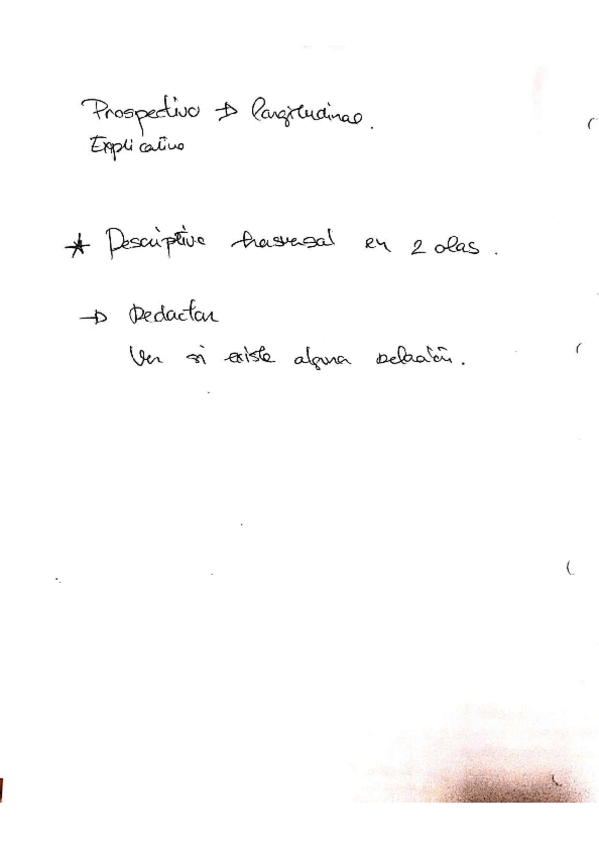 Prospectivo → longitudinal.
Explicativo
* Descriptivo trasversal en 2 olas.
→ Redactar
Ver si existe alguna relación.